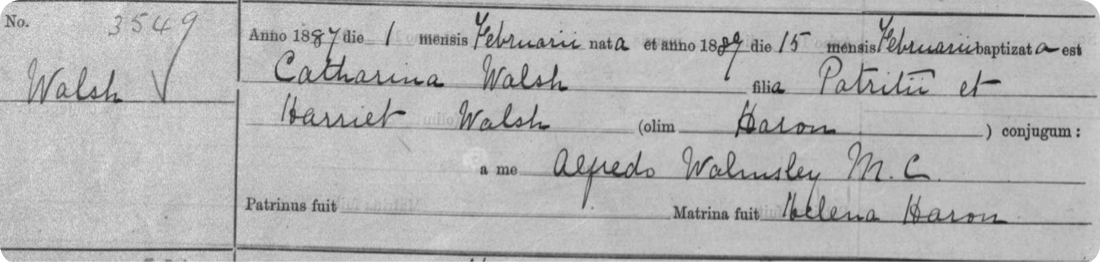 No. 3549
Anno 1887 die 1 mensis Februarii nata et anno 1887 die 15 mensis Februarii baptizata est
Walsh
Catharina Walsh filia Patritii et
Harriet Walsh (olim Haron) conjugum:
a me Alfredo Walmsley M.C.
Patrinus fuit Matrina fuit Helena Haron